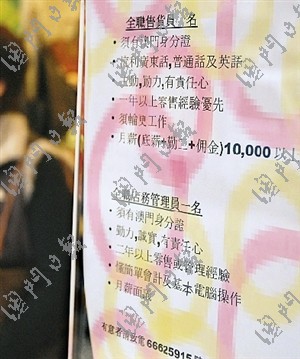 全職售貨員一名
須有澳門身分證
流利廣東話,普通話及英話
主動,勤力,有責任心
一年以上零售經驗優先
須輪更工作
月薪(底薪+勤工+佣金)10,000以上
全職店務管理員一名
須有澳門身分證
勤力,誠實,有責任心
二年以上零售或管理經驗
懂簡單會計及基本電腦操作
月薪面議
有意者請致電
澳門日報